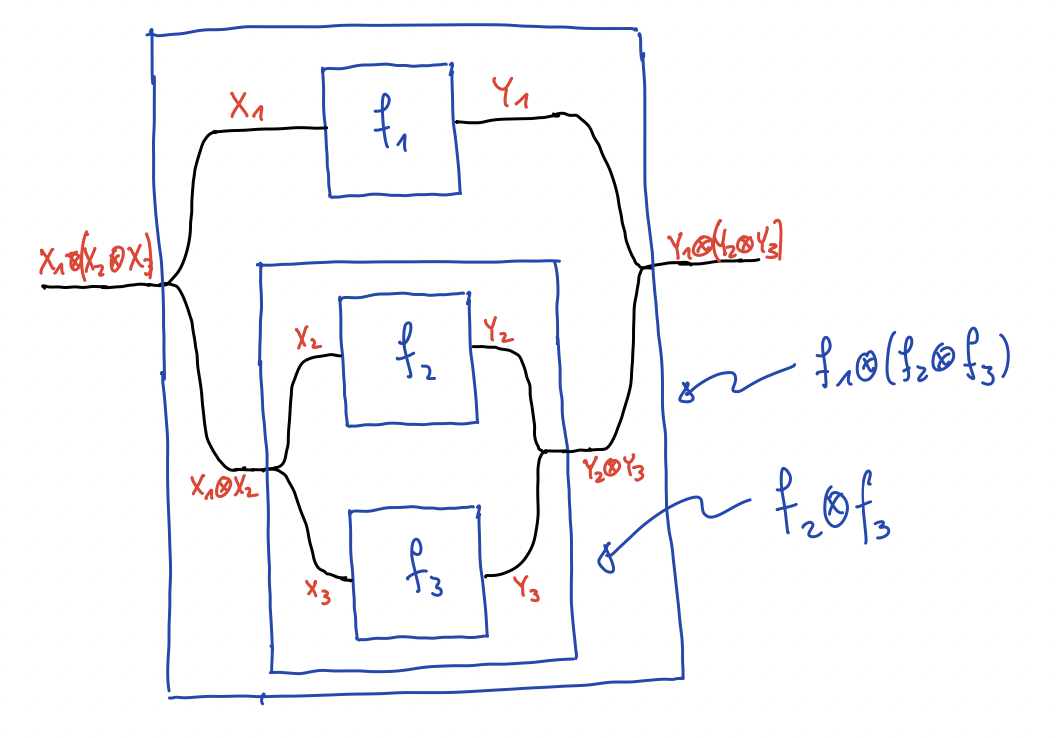 X₁ Y₁
f₁
X₁⊗(X₂⊗X₃) Y₁⊗(Y₂⊗Y₃)
X₂ Y₂
f₂
f₁⊗(f₂⊗f₃)
X₁⊗X₂ Y₂⊗Y₃
f₂⊗f₃
f₃
X₃ Y₃